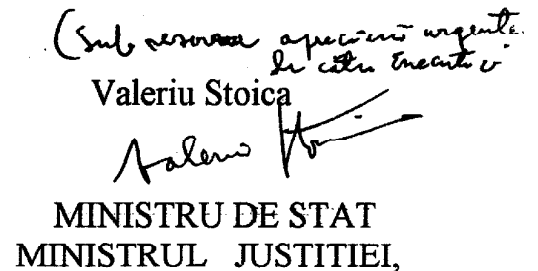 (Sub rezerva aprecierii urgenței
de către Executiv)
Valeriu Stoica
Valeriu Stoica
MINISTRU DE STAT
MINISTRUL JUSTITIEI,